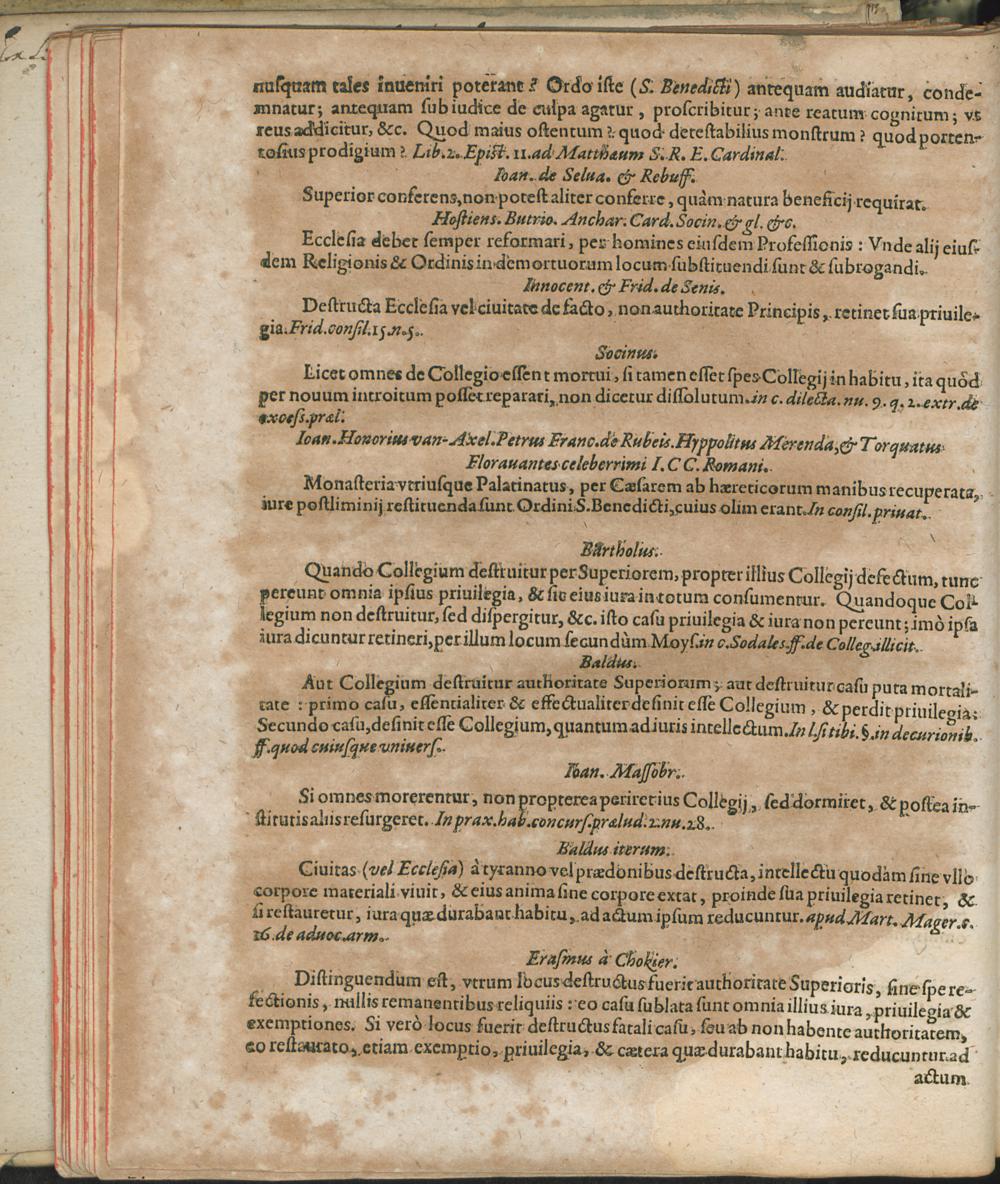 nuſquam tales inueniri poterant? Ordo iſte (S. Benedicti) antequam audiatur, conde-
mnatur; antequam ſub iudice de culpa agatur, proſcribitur; ante reatum cognitum; vt
reus addicitur, &c. Quod maius oſtentum? quod deteſtabilius monſtrum? quod porten-
toſius prodigium? Lib. 2. Epiſt. 11. ad Matthæum S. R. E. Cardinal.
Ioan. de Selua. & Rebuff.
Superior conferens, non poteſt aliter conferre, quàm natura beneficij requirat.
Hoſtiens. Butrio. Anchar. Card. Socin. & gl. &c.
Eccleſia debet ſemper reformari, per homines eiuſdem Profeſſionis: Vnde alij eiuſ-
dem Religionis & Ordinis in demortuorum locum ſubſtituendi ſunt & ſubrogandi.
Innocent. & Frid. de Senis.
Deſtructa Eccleſia vel ciuitate de facto, non authoritate Principis, retinet ſua priuile-
gia. Frid. conſil. 15. n. 5.
Socinus.
Licet omnes de Collegio eſſent mortui, ſi tamen eſſet ſpes Collegij in habitu, ita quòd
per nouum introitum poſſet reparari, non dicetur diſſolutum. in c. dilecta. nu. 9. q. 2. extr. de
exceſs. præl.
Ioan. Honorius van-Axel. Petrus Franc. de Rubeis. Hyppolitus Merenda, & Torquatus
Florauantes celeberrimi I. C C. Romani.
Monaſteria vtriuſque Palatinatus, per Cæſarem ab hæreticorum manibus recuperata,
iure poſtliminij reſtituenda ſunt Ordini S. Benedicti, cuius olim erant. In conſil. priuat.
Bartholus.
Quando Collegium deſtruitur per Superiorem, propter illius Collegij defectum, tunc
pereunt omnia ipſius priuilegia, & ſic eius iura in totum conſumentur. Quandoque Col-
legium non deſtruitur, ſed diſpergitur, &c. iſto caſu priuilegia & iura non pereunt; imò ipſa
iura dicuntur retineri, per illum locum ſecundùm Moyſ. in c. Sodales. ff. de Colleg. illicit.
Baldus.
Aut Collegium deſtruitur authoritate Superiorum; aut deſtruitur caſu puta mortali-
tate: primo caſu, eſſentialiter & effectualiter deſinit eſſe Collegium, & perdit priuilegia:
Secundo caſu, deſinit eſſe Collegium, quantum ad iuris intellectum. In l. ſi tibi. §. in decurionib.
ff. quod cuiuſque vniuerſ.
Ioan. Maſſobr.
Si omnes morerentur, non propterea periret ius Collegij, ſed dormiret, & poſtea in-
ſtitutis aliis reſurgeret. In prax. hab. concurſ. prælud. 2. nu. 28.
Baldus iterum.
Ciuitas (vel Eccleſia) à tyranno vel prædonibus deſtructa, intellectu quodam ſine vllo
corpore materiali viuit, & eius anima ſine corpore extat, proinde ſua priuilegia retinet, &
ſi reſtauretur, iura quæ durabant habitu, ad actum ipſum reducuntur. apud Mart. Mager. c.
16. de aduoc. arm.
Eraſmus à Chokier.
Diſtinguendum eſt, vtrum locus deſtructus fuerit authoritate Superioris, ſine ſpe re-
fectionis, nullis remanentibus reliquiis: eo caſu ſublata ſunt omnia illius iura, priuilegia &
exemptiones. Si verò locus fuerit deſtructus fatali caſu, ſeu ab non habente authoritatem,
eo reſtaurato, etiam exemptio, priuilegia, & cætera quæ durabant habitu, reducuntur ad
actum